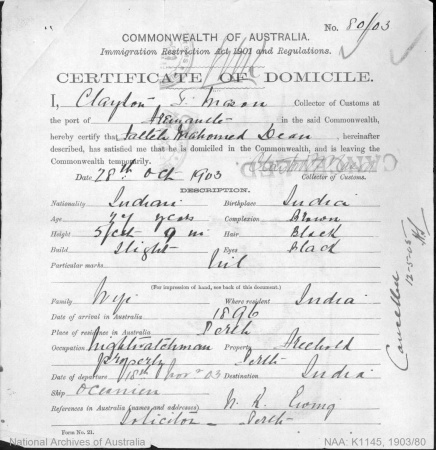 No. 80/03
COMMONWEALTH OF AUSTRALIA.
Immigration Restriction Act 1901 and Regulations.
CERTIFICATE OF DOMICILE.
I, Clayton T. Mason Collector of Customs at
the port of Fremantle in the said Commonwealth,
hereby certify that Fatteh Mahomed Dean, hereinafter
described, has satisfied me that he is domiciled in the Commonwealth, and is leaving the
Commonwealth temporarily.
Date 28th Oct 1903
Collector of Customs.
DESCRIPTION.
Nationality Indian Birthplace India
Age years Complexion Brown
Height 5 feet 9 in Hair Black
Build Slight Eyes Black
Particular marks Nil
(For impression of hand, see back of this document.)
Family Wife Where resident India
Date of arrival in Australia 1896
Place of residence in Australia Perth
Occupation Nightwatchman Property Freehold
property Perth
Date of departure 18th Nov 03 Destination India
Ship Oceanien
References in Australia (names and addresses) N. K. Ewing
Solicitor - Perth
Form No. 21.
Cancelled
12-5-05
National Archives of Australia
NAA: K1145, 1903/80